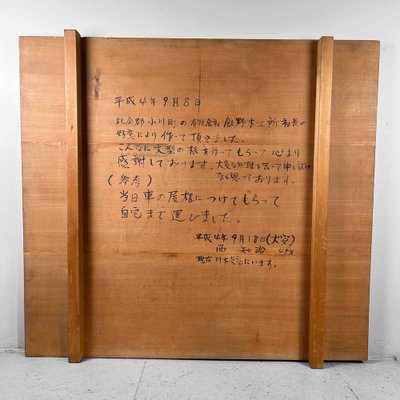 平成4年9月8日
比企郡小川町の有限会社飯野木工所社長の
好意により作って頂きました。
こんなに大型の板を作ってもらって心より
感謝しております。大変な無理を云って申し訳け
なく思っております。
(参考)
当日車の屋根につけてもらって
自宅まで運びました。
平成4年9月18日(大安)
西 知治
現在川本文公にいます。